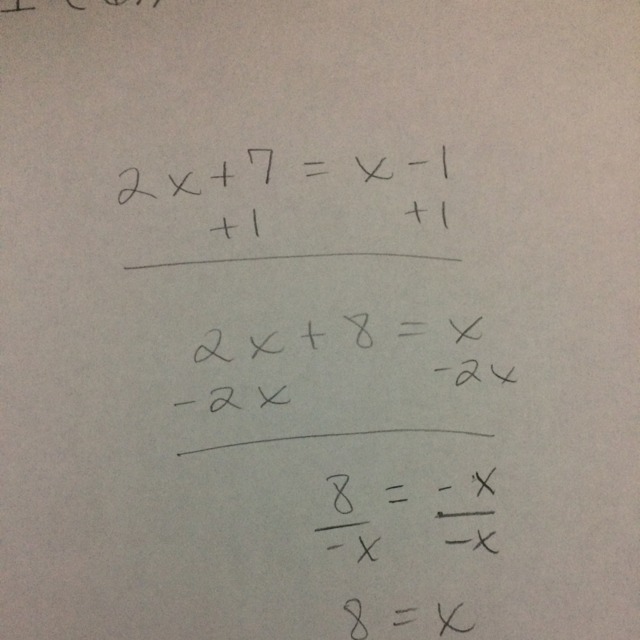 2x + 7 = x - 1
+1 +1
2x + 8 = x
-2x -2x
8 = -x
-x -x
8 = x